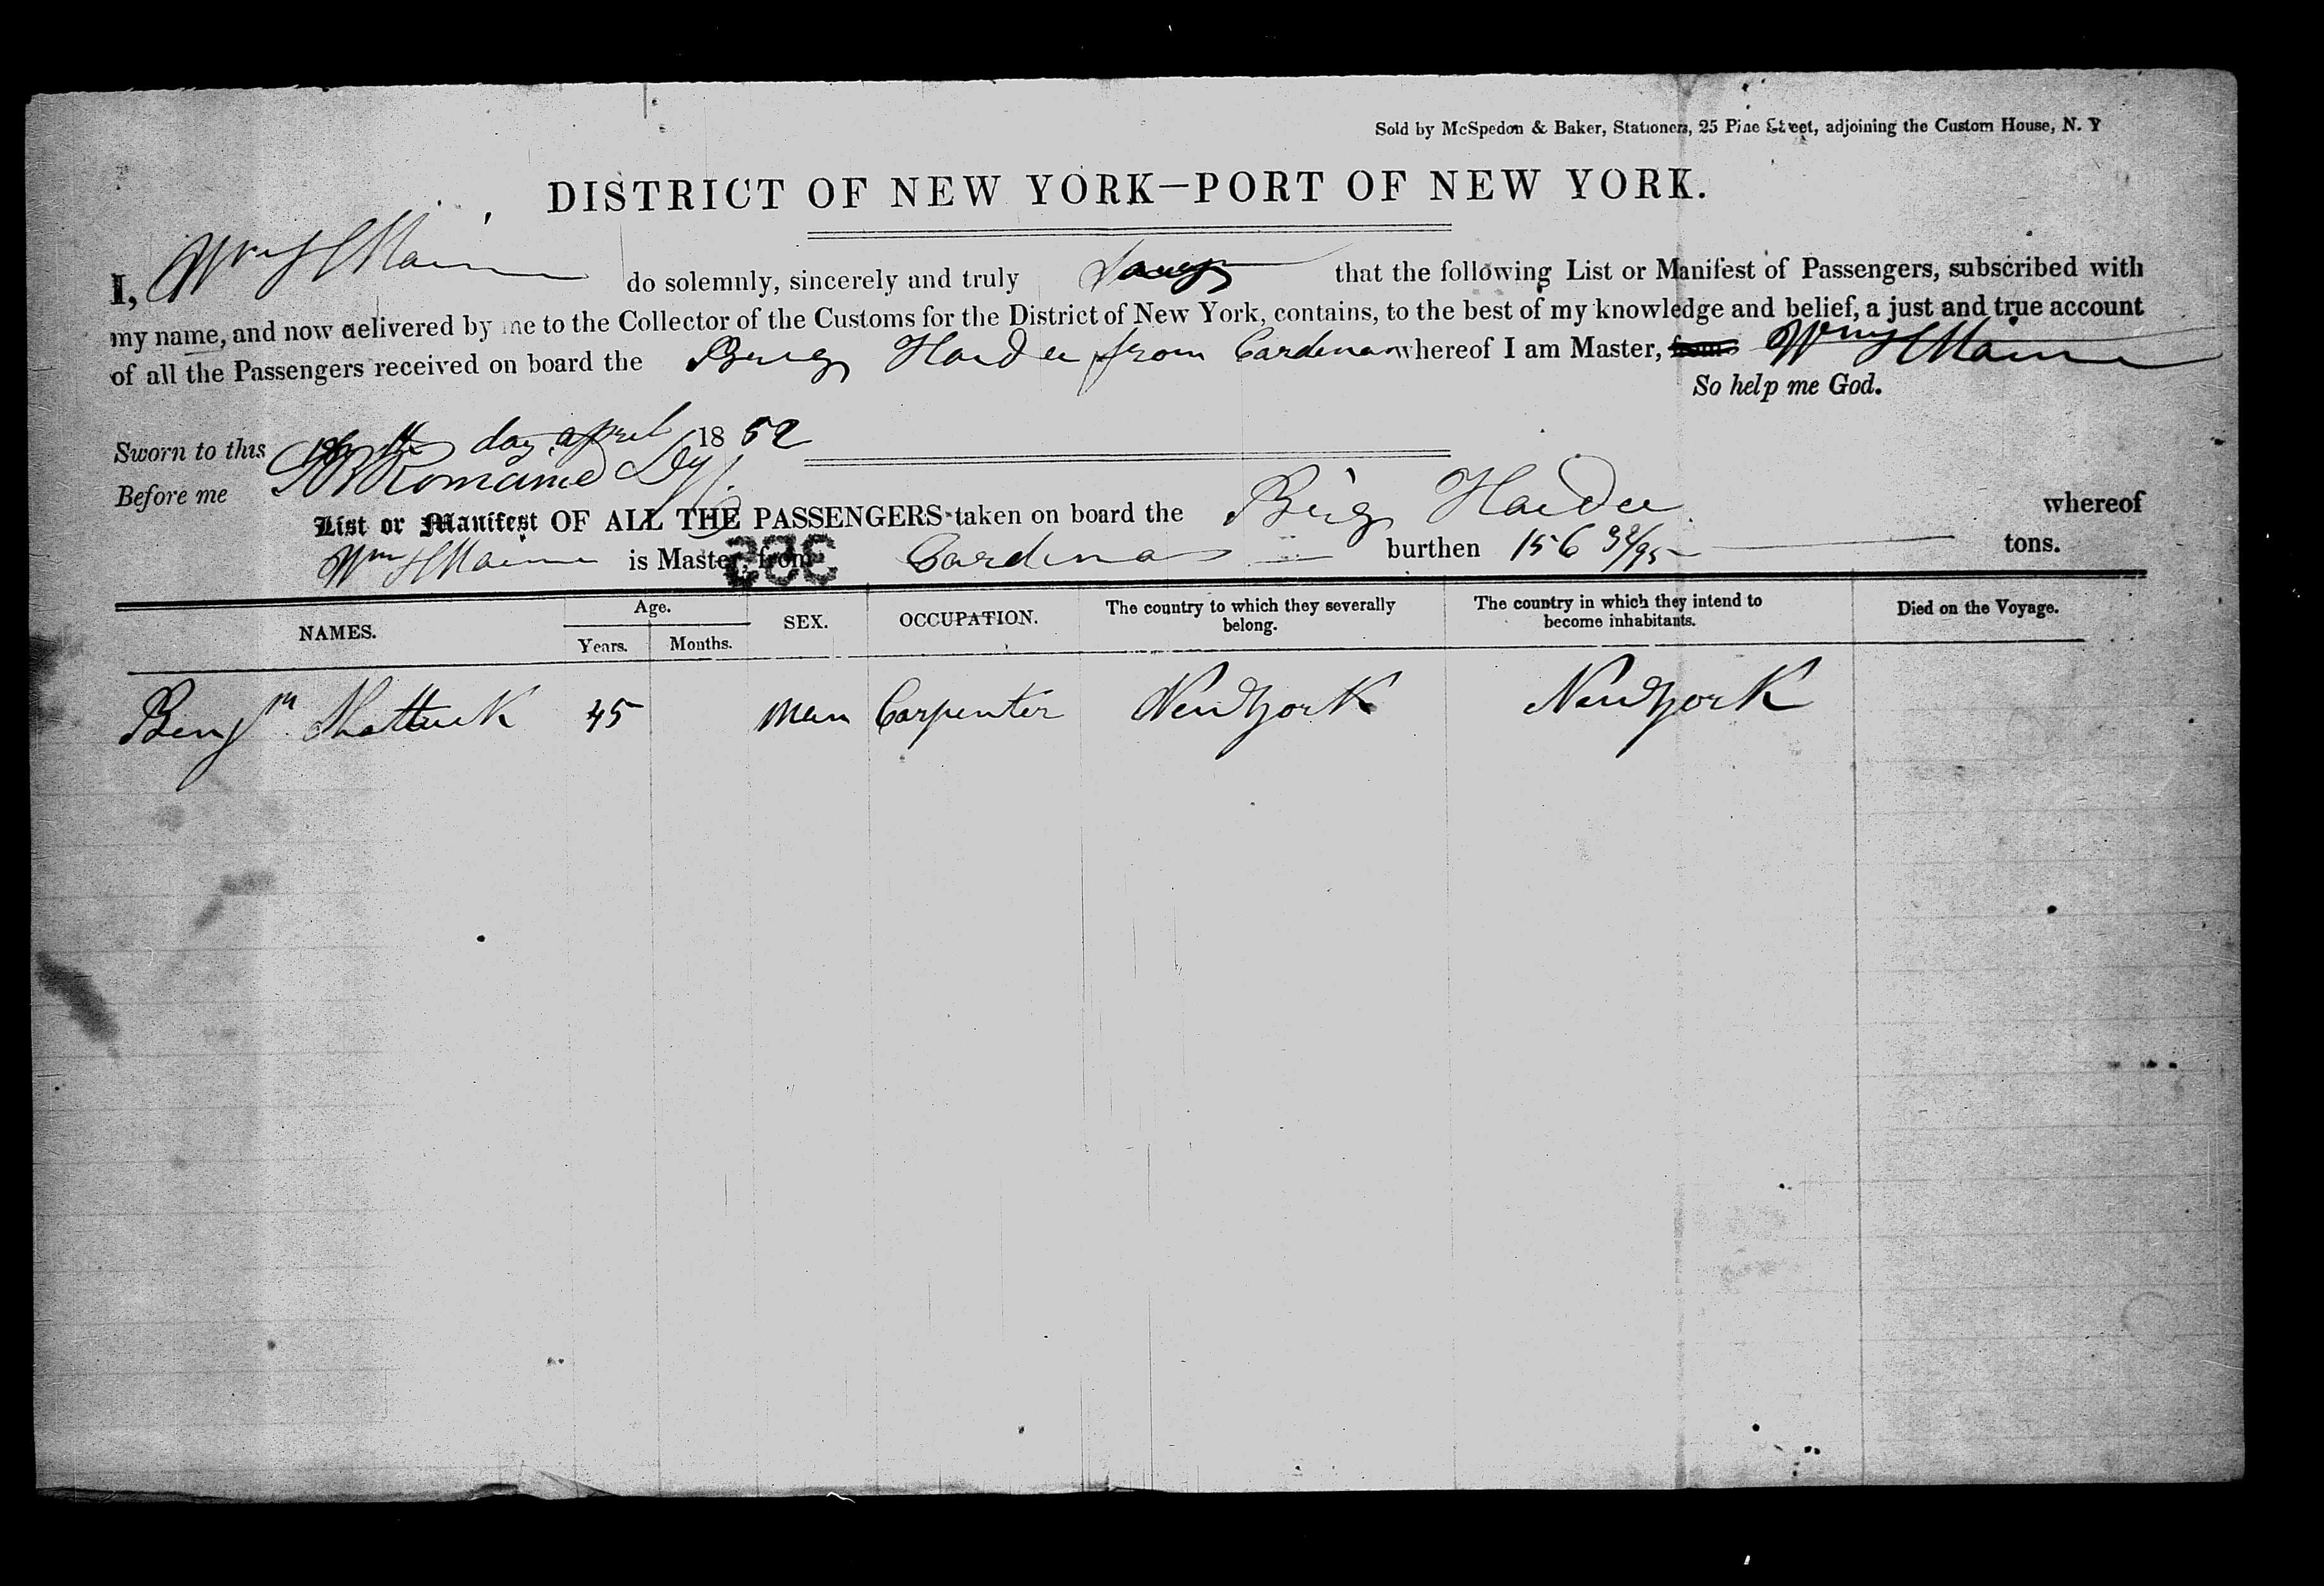 Sold by McSpedon & Baker, Stationers, 25 Pine Street, adjoining the Custom House, N. Y
DISTRICT OF NEW YORK—PORT OF NEW YORK.
I, Wm H Maine do solemnly, sincerely and truly that the following List or Manifest of Passengers, subscribed with
my name, and now delivered by me to the Collector of the Customs for the District of New York, contains, to the best of my knowledge and belief, a just and true account
of all the Passengers received on board the Brig from Cardenas whereof I am Master, from Wm H Maine
So help me God.
Sworn to this day april 1852
Before me Romaine Dy
List or Manifest OF ALL THE PASSENGERS taken on board the Brig whereof
Wm H Maine is Master, from Cardenas burthen 156 tons.
335
NAMES. Age. SEX. OCCUPATION. The country to which they severally belong. The country in which they intend to become inhabitants. Died on the Voyage.
Years. Months.
Benjm Shattuck 45 Man Carpenter New York New York